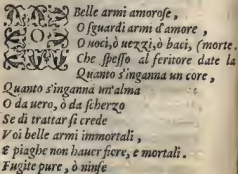 IO Belle armi amorose,
O sguardi armi d'amore,
O voci, ò vezzi, ò baci, (morte.
Che spesso al feritore date la
Quanto s'inganna un core,
Quanto s'inganna un'alma
O da vero, ò da scherzo
Se di trattar si crede
Voi belle armi immortali,
E piaghe non hauer fiere, e mortali.
Fugite pure, ò ninfe